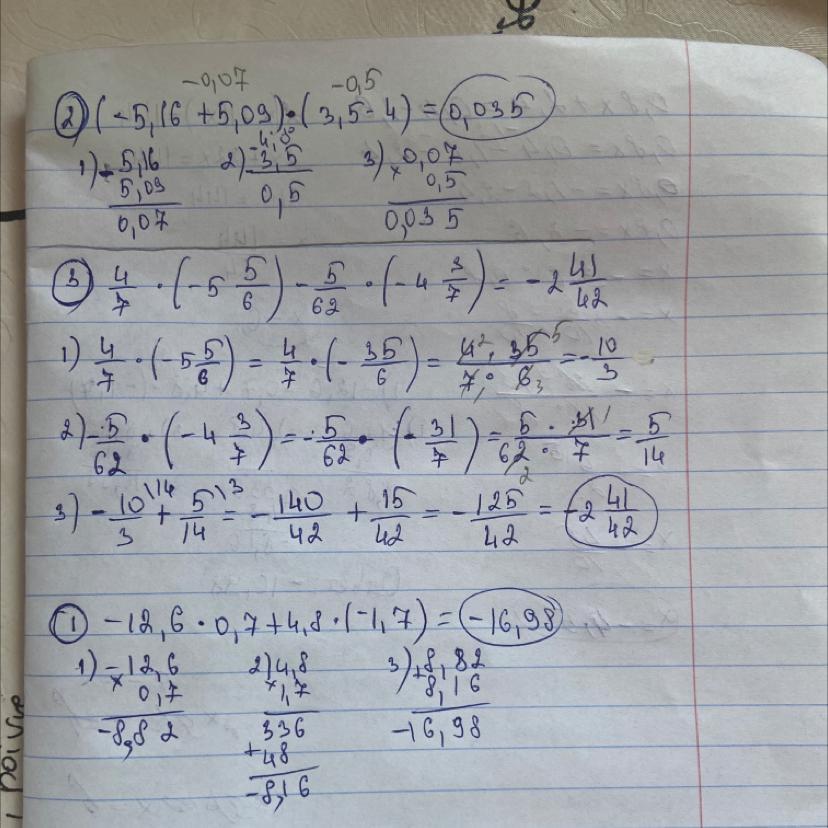 -0,07 -0,5
2) (-5,16 + 5,09) · (3,5 - 4) = 0,035
1) - 5,16 2) - 4,0 3) × 0,07
5,09 3,5 0,5
0,07 0,5 0,035
3) 4/7 · (-5 5/6) - 5/62 · (-4 3/7) = -2 41/42
1) 4/7 · (-5 5/6) = 4/7 · (- 35/6) = 4² · 35⁵ / 7₁ · 6₃ = - 10/3
2) - 5/62 · (-4 3/7) = - 5/62 · (- 31/7) = 5 · 31¹ / 62₂ · 7 = 5/14
3) - 10/3 \14 + 5/14 \3 = - 140/42 + 15/42 = - 125/42 = -2 41/42
1) -12,6 · 0,7 + 4,8 · (-1,7) = -16,98
1) -12,6 2) 4,8 3) + 8,82
× 0,7 × 1,7 8,16
-8,82 336 -16,98
+ 48
-8,16